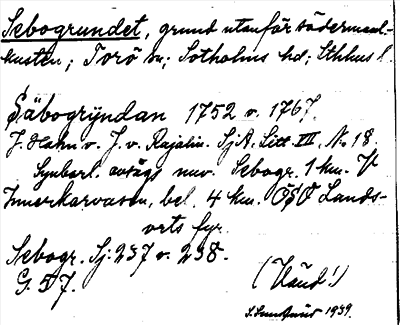 Sebogrundet, grund utanför södermanl-
kusten; Torö sn; Sotholms hd; Sthlms l.
Säbogryndan 1752 o. 1767.
J. Hahn o. J. v. Rajalin. SjA. Litt. VII, No 18.
Synbarl. avsågs nuv. Sebogr. 1 km. V
Innerkarvasen, bel. 4 km. OSO Lands-
orts fyr.
Sebogr. Sj: 237 o. 238.
G. 57.
1939.